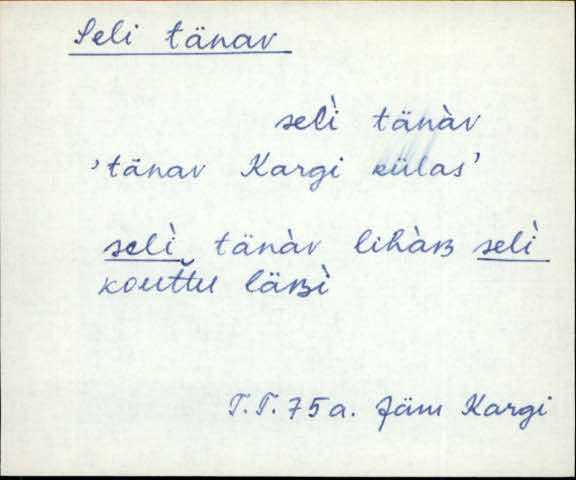 Seli tänav
selì tänàv
'tänav Kargi külas'
selì tänàv lihàʙ selì
kouťťu läʙì
T.T. 75a. Jäm Kargi